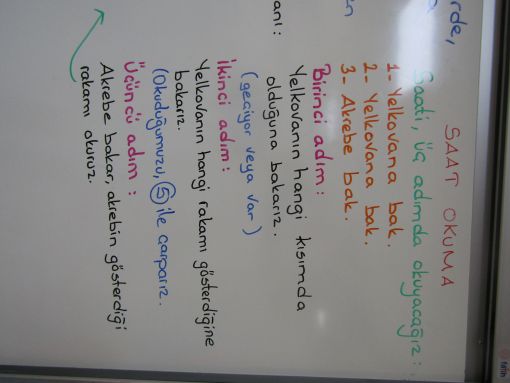 SAAT OKUMA
Saati, üç adımda okuyacağız:
1- Yelkovana bak.
2- Yelkovana bak.
3- Akrebe bak.
Birinci adım:
Yelkovanın hangi kısımda
olduğuna bakarız.
(geçiyor veya var)
İkinci adım:
Yelkovanın hangi rakamı gösterdiğine
bakarız.
(Okuduğumuzu, 5 ile çarparız.
Üçüncü adım:
Akrebe bakar, akrebin gösterdiği
rakamı okuruz.